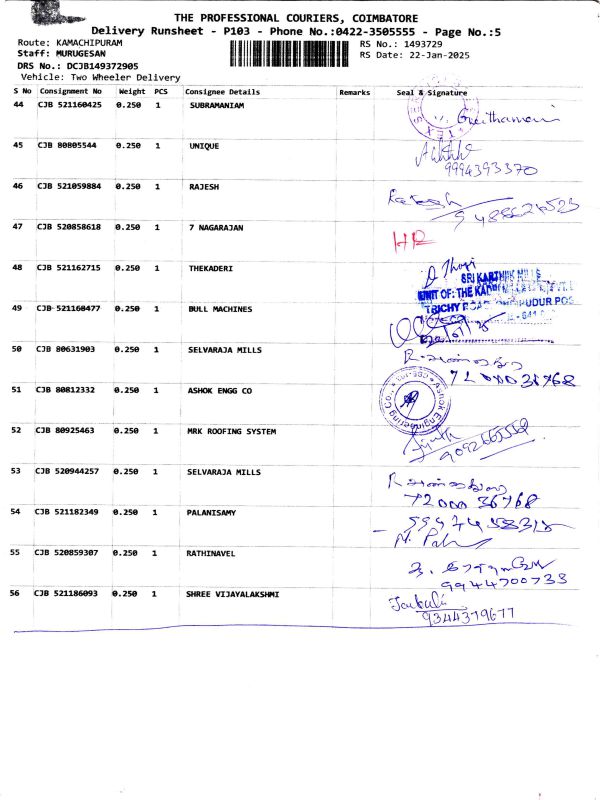 THE PROFESSIONAL COURIERS, COIMBATORE
Delivery Runsheet - P103 - Phone No.:0422-3505555 - Page No.:5
Route: KAMACHIPURAM
RS No.: 1493729
Staff: MURUGESAN
RS Date: 22-Jan-2025
DRS No.: DCJB149372905
Vehicle: Two Wheeler Delivery
S No Consignment No Weight PCS Consignee Details Remarks Seal & Signature
44 CJB 521160425 0.250 1 SUBRAMANIAM
45 CJB 80805544 0.250 1 UNIQUE
9994393370
46 CJB 521059884 0.250 1 RAJESH
47 CJB 520858618 0.250 1 7 NAGARAJAN
48 CJB 521162715 0.250 1 THEKADERI
SRI KARTHIK MILLS
UNIT OF: THE
TRICHY ROAD
49 CJB 521160477 0.250 1 BULL MACHINES
50 CJB 80631903 0.250 1 SELVARAJA MILLS
72000 36768
51 CJB 80812332 0.250 1 ASHOK ENGG CO
Ashok Engineering Co.
52 CJB 80925463 0.250 1 MRK ROOFING SYSTEM
53 CJB 520944257 0.250 1 SELVARAJA MILLS
72000 36768
54 CJB 521182349 0.250 1 PALANISAMY
55 CJB 520859307 0.250 1 RATHINAVEL
9944700733
56 CJB 521186093 0.250 1 SHREE VIJAYALAKSHMI
9344379677